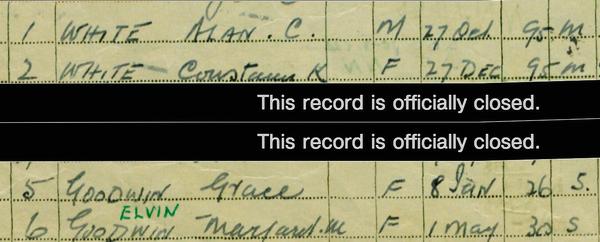 1 WHITE ALAN. C. M 27 Oct 95 M
2 WHITE Constance K F 27 DEC 95 M
This record is officially closed.
This record is officially closed.
5 GOODWIN Grace F 8 Jan 26 S.
ELVIN
6 GOODWIN Margaret. M F 1 May 30 S